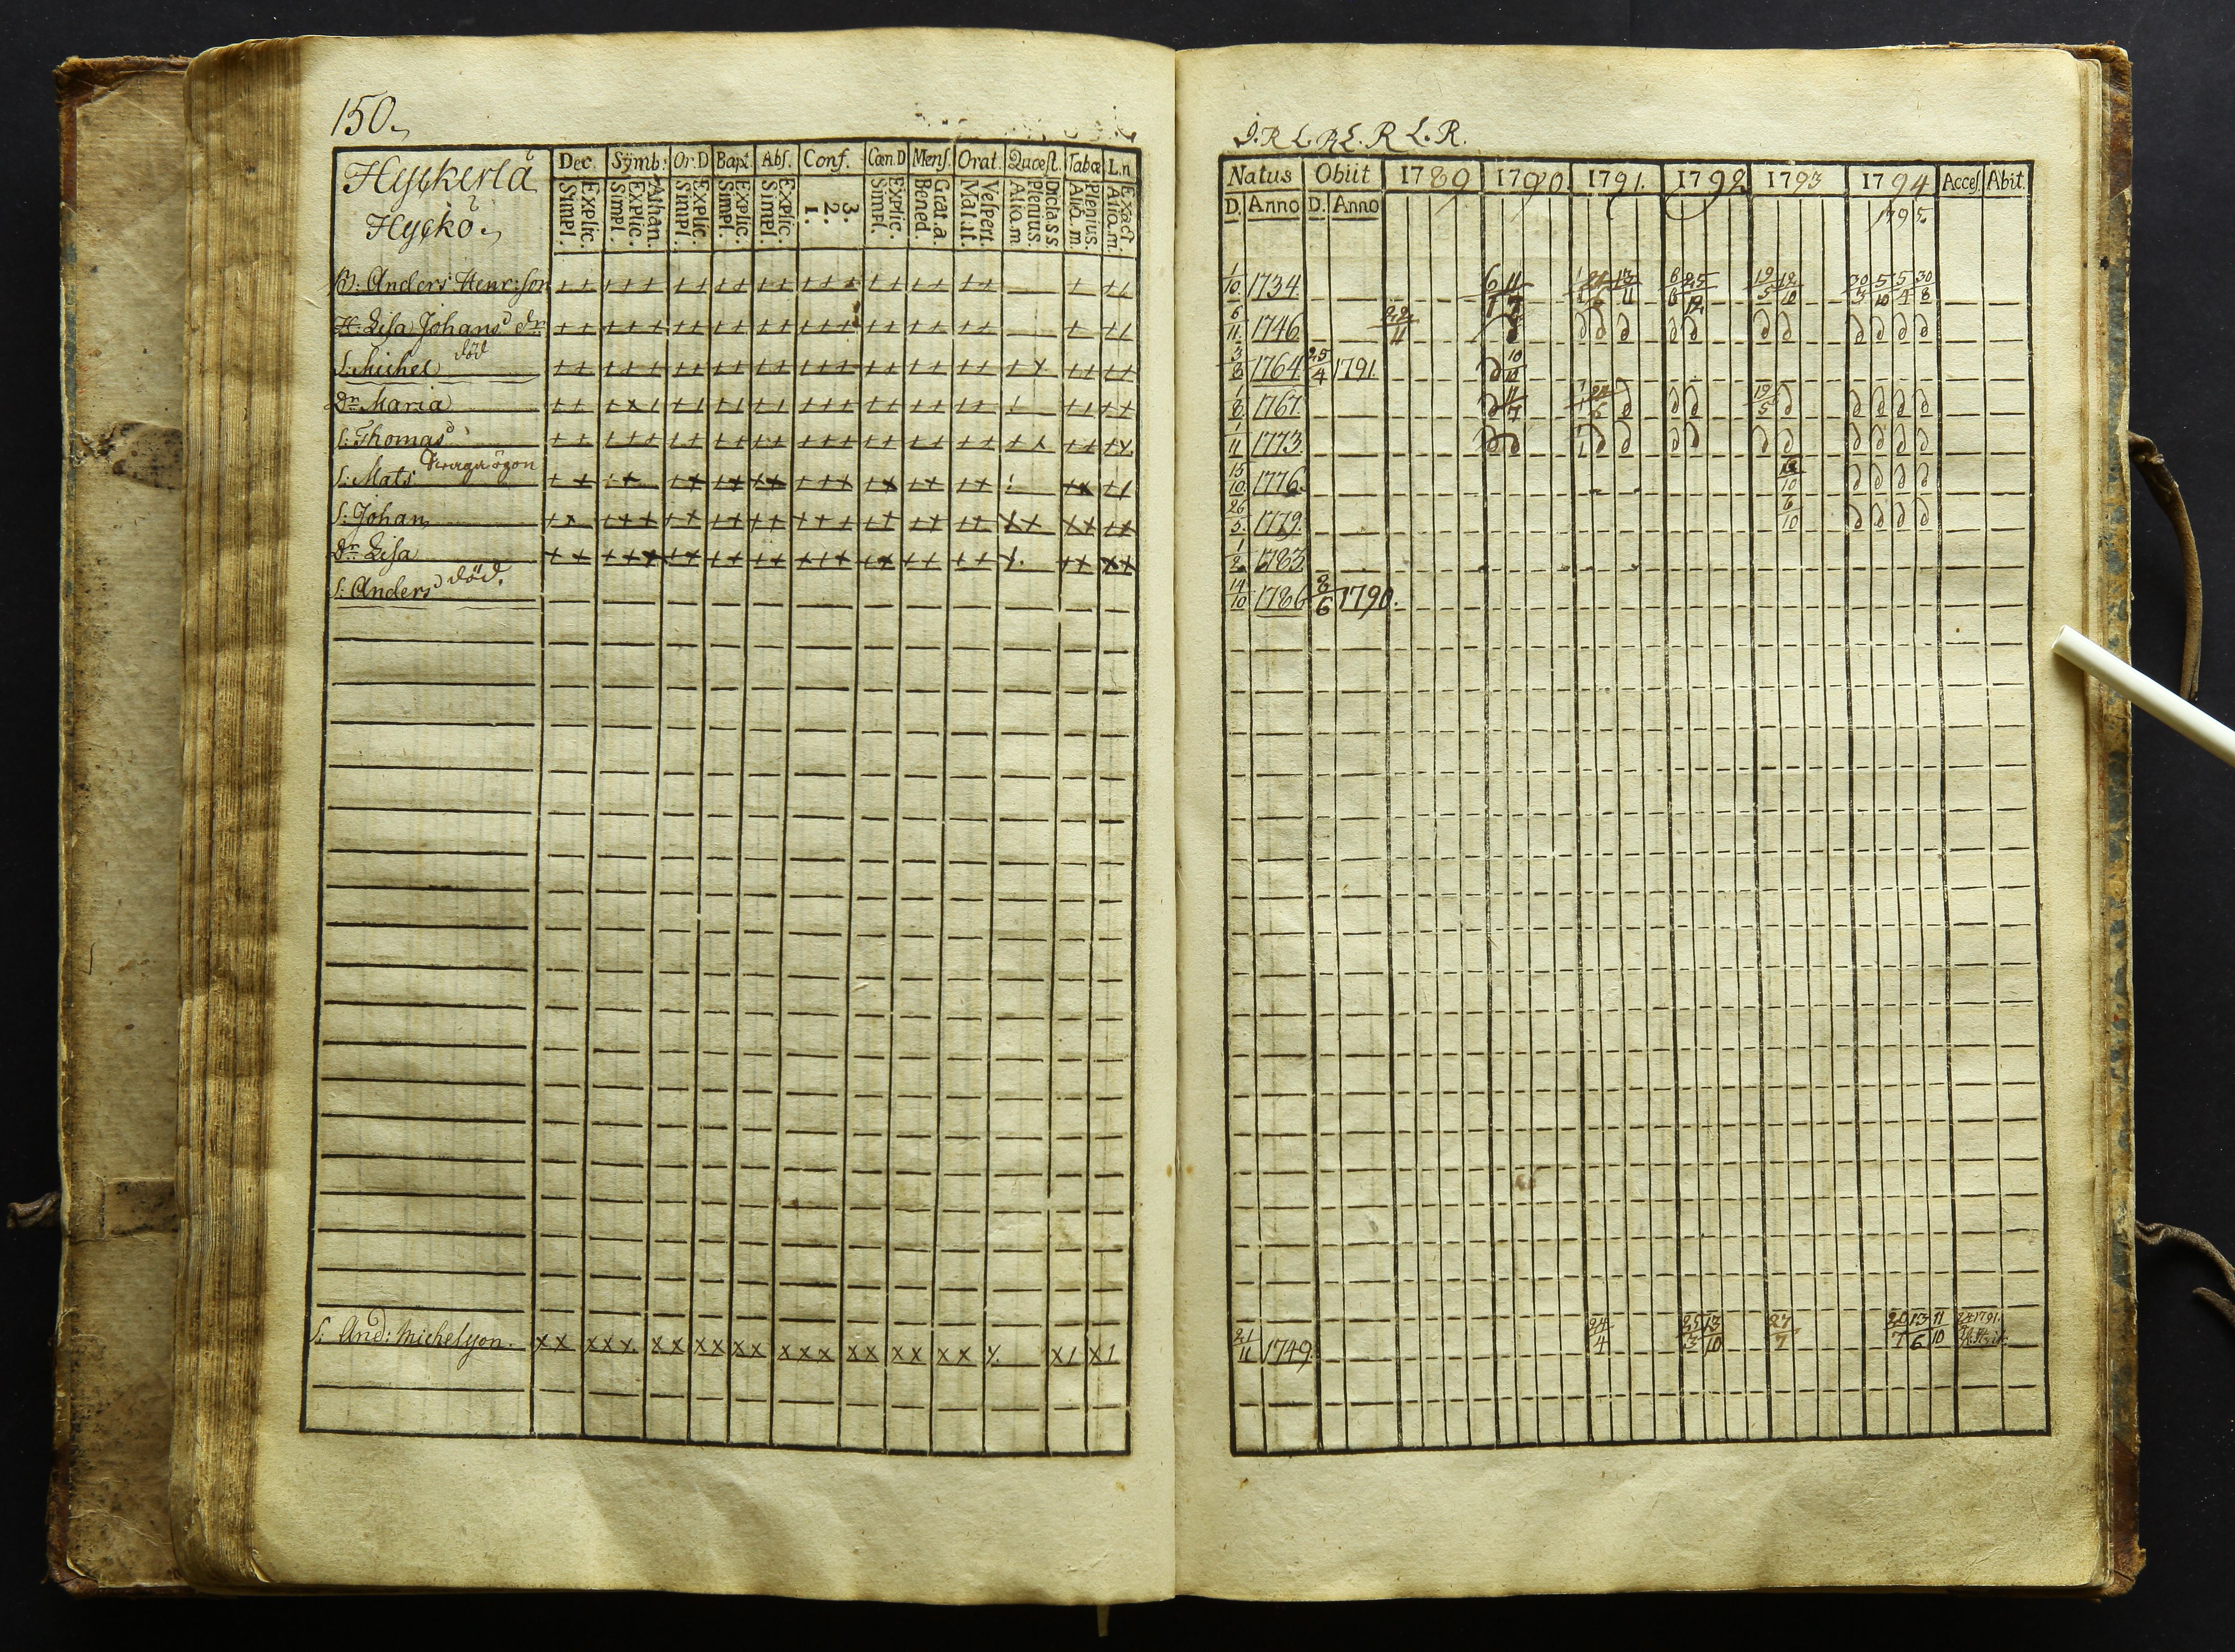 150.
Hyckerlä
Hyckö.
Dec. Symb: Or:D Bapt. Abs. Conf. Cœn.D Mens. Orat. Quæst. Tabœ L.n
Explic. Simpl. Athan. Explic. Simpl. Explic. Simpl. Explic. Simpl. Explic. Simpl. 3. 2. 1. Explic. Simpl. Grat.a. Bened. Vespert. Matut. Dicta s.s. Plenius. Aliq.m. Plenius. Aliq.m. Exact. Aliq.m.
B: Anders Henr:son
H. Lisa Johans dr
S: Michel död
Dr Maria
S: Thomas
S: Mats ögon
S: Johan
Dr Lisa
S: Anders död.
S: And: Michelson.
J.R L.R L.R L.R.
Natus Obiit 1789 1790. 1791. 1792 1793 1794 Acces. Abit.
D. Anno D. Anno 1795
1/10 1734 6/1 11/7 13/11 6/6 25/12 19/5 12/10 30/3 5/10 5/4 30/8
6/11 1746 22/11
3/8 1764 25/4 1791. 10/10
1/8 1767. 11/7 19/5
1/11 1773.
15/10 1776.
26/5 1779. 6/10
1/2 1783
14/10 1786 8/6 1790.
21/11 1749. 24/4 25/3 13/10 27/7 20/7 13/6 11/10 24 1791.